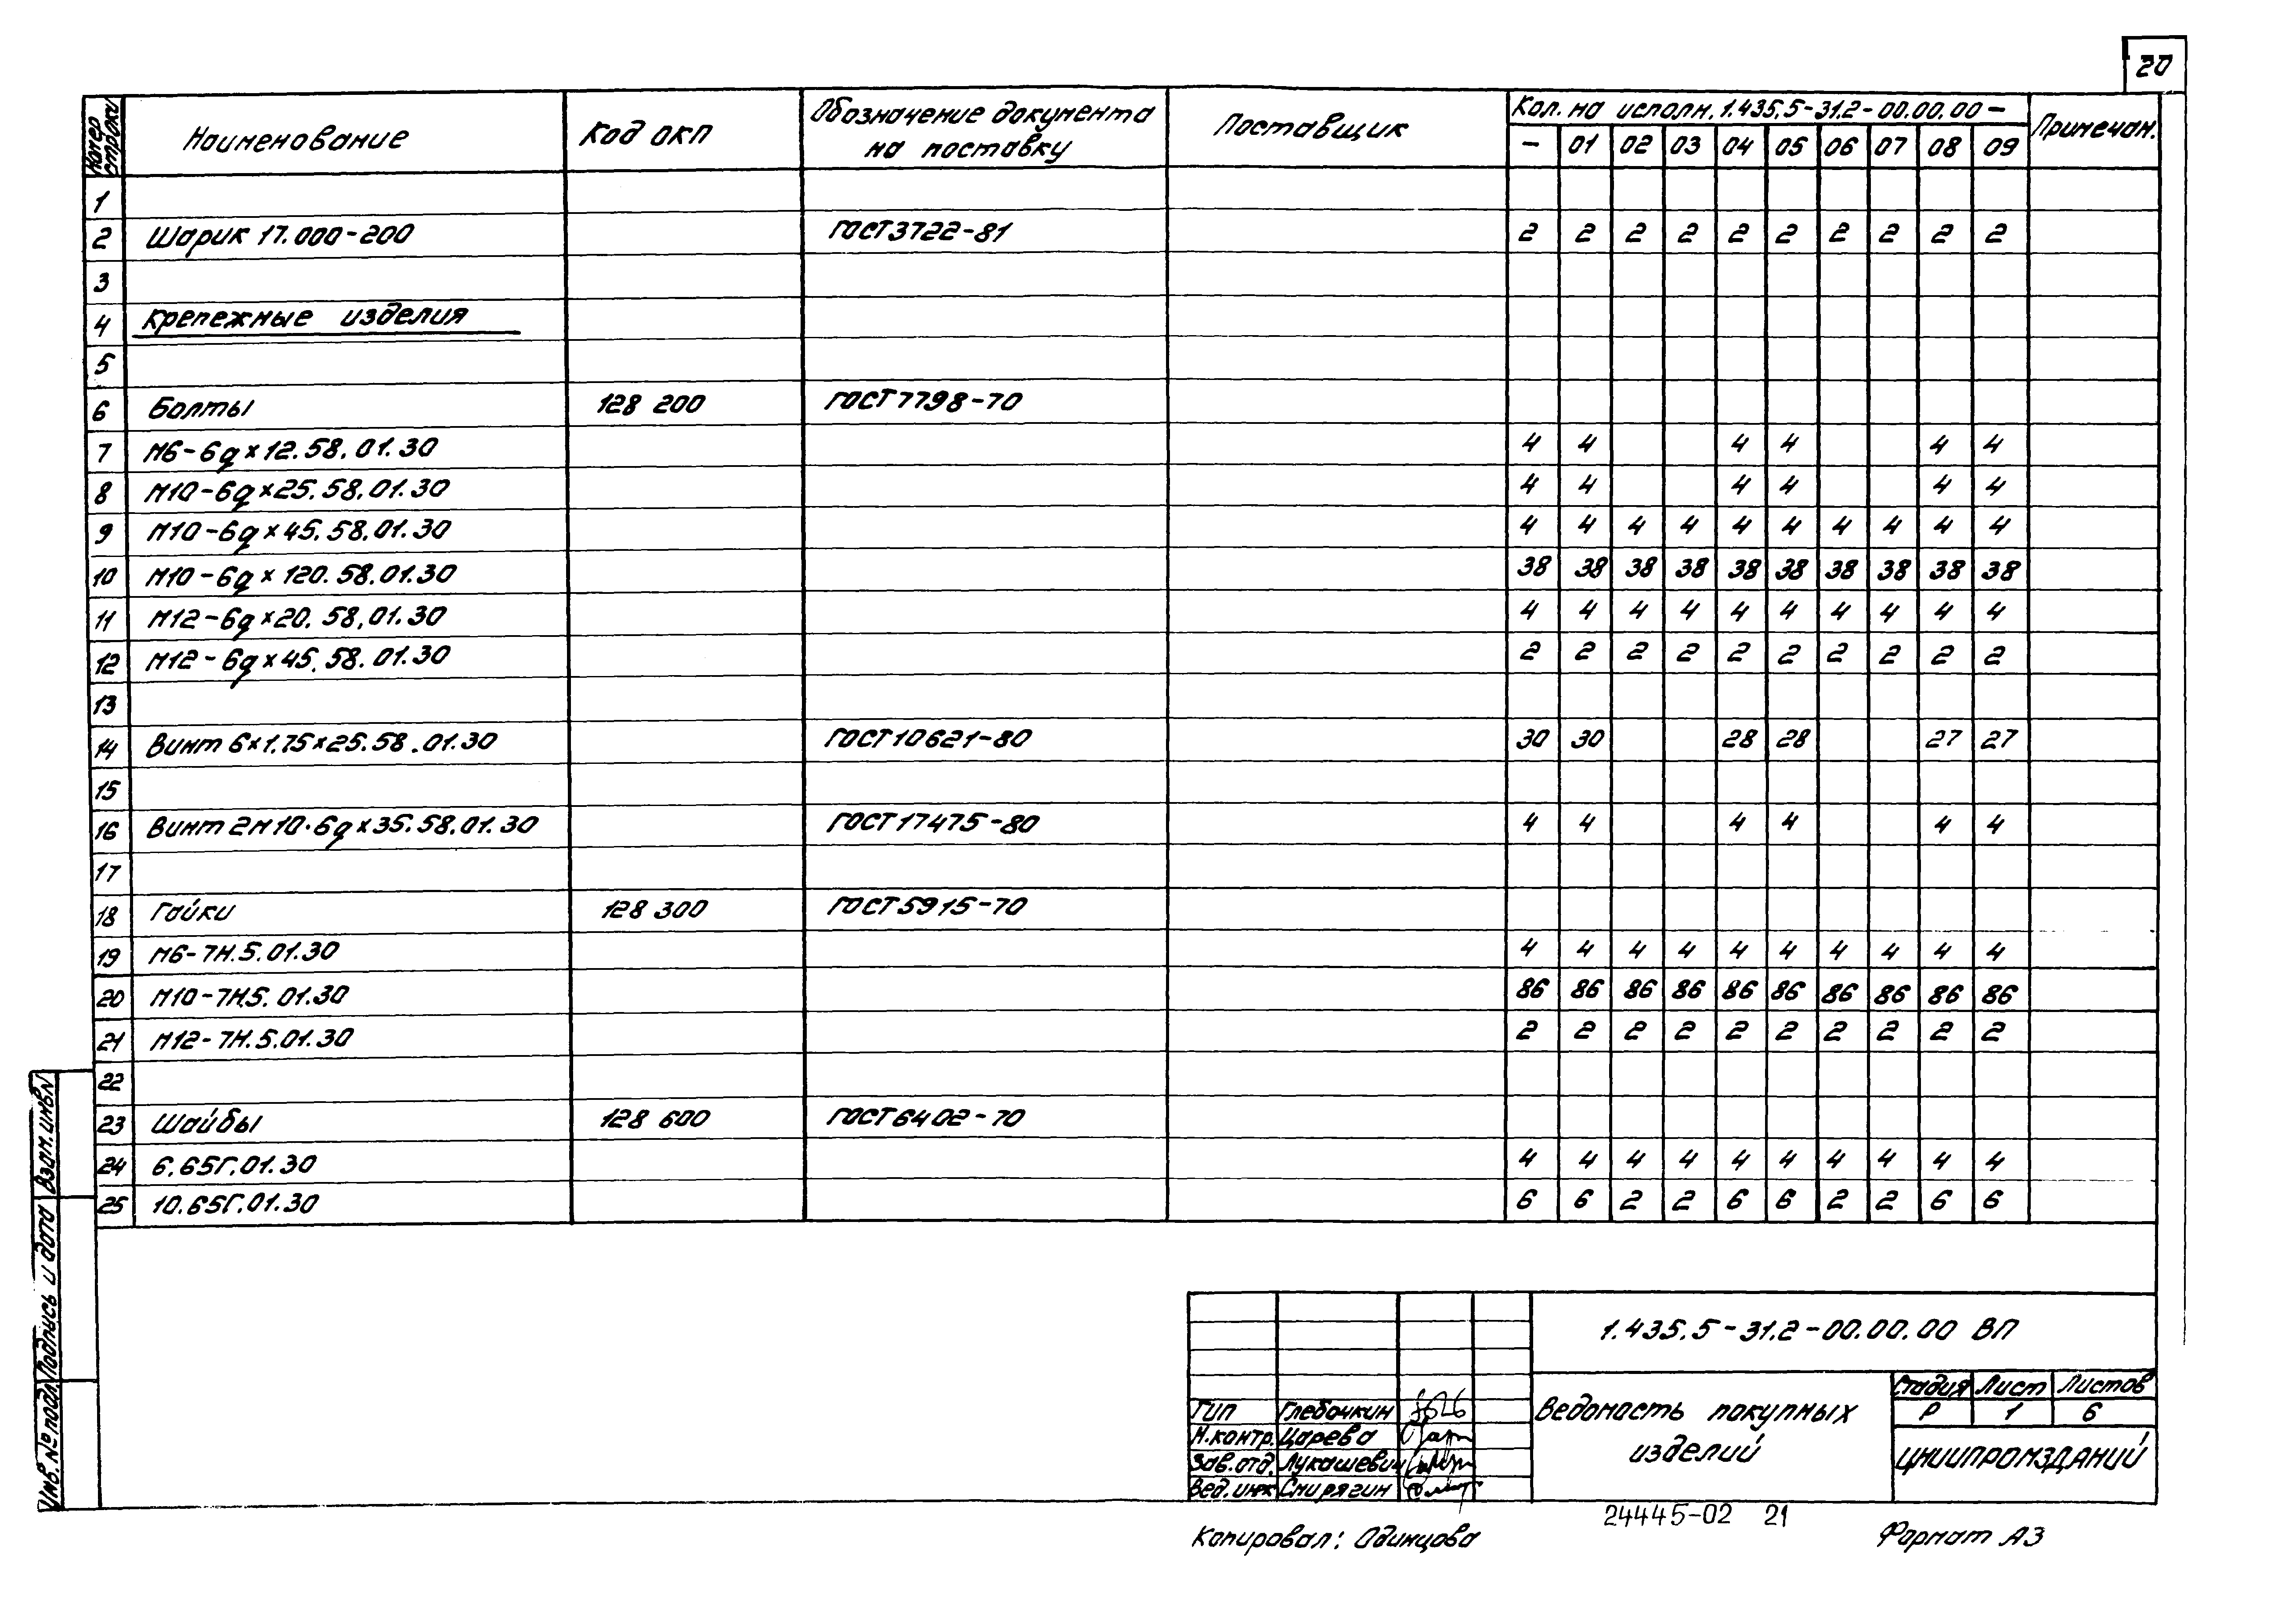 20
Номер строки | Наименование | Код ОКП | Обозначение документа на поставку | Поставщик | Кол. на исполн. 1.435.5-31.2-00.00.00- | Примечан.
- 01 02 03 04 05 06 07 08 09
1
2 Шарик 17.000-200 ГОСТ 3722-81 2 2 2 2 2 2 2 2 2 2
3
4 Крепежные изделия
5
6 Болты 128 200 ГОСТ 7798-70
7 М6-6g×12.58.01.30 4 4 4 4 4 4
8 М10-6g×25.58.01.30 4 4 4 4 4 4
9 М10-6g×45.58.01.30 4 4 4 4 4 4 4 4 4 4
10 М10-6g×120.58.01.30 38 38 38 38 38 38 38 38 38 38
11 М12-6g×20.58.01.30 4 4 4 4 4 4 4 4 4 4
12 М12-6g×45.58.01.30 2 2 2 2 2 2 2 2 2 2
13
14 Винт 6×1.75×25.58.01.30 ГОСТ 10621-80 30 30 28 28 27 27
15
16 Винт 2М10·6g×35.58.01.30 ГОСТ 17475-80 4 4 4 4 4 4
17
18 Гайки 128 300 ГОСТ 5915-70
19 М6-7Н.5.01.30 4 4 4 4 4 4 4 4 4 4
20 М10-7Н.5.01.30 86 86 86 86 86 86 86 86 86 86
21 М12-7Н.5.01.30 2 2 2 2 2 2 2 2 2 2
22
23 Шайбы 128 600 ГОСТ 6402-70
24 6.65Г.01.30 4 4 4 4 4 4 4 4 4 4
25 10.65Г.01.30 6 6 2 2 6 6 2 2 6 6
Взам. инв. N
Подпись и дата
Инв. № подл.
1.435.5-31.2-00.00.00 ВП
ГИП Глебочкин
Н.контр. Царева
Зав.отд. Лукашевич
Вед.инж Смирягин
Ведомость покупных изделий
Стадия Лист Листов
Р 1 6
ЦНИИПРОМЗДАНИЙ
24445-02 21
Копировал: Одинцова Формат А3